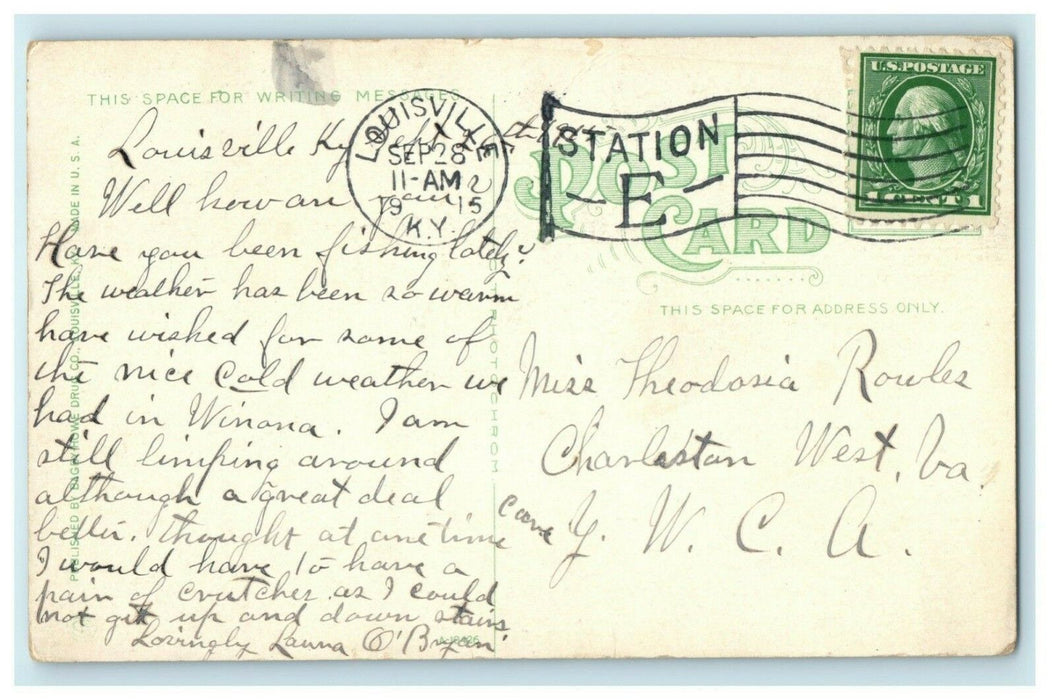 THIS SPACE FOR WRITING MESSAGES
Louisville Ky
Well how are you
Have you been fishing lately?
The weather has been so warm
have wished for some of
the nice cold weather we
had in Winona. I am
still limping around
although a great deal
better. thought at one time
I would have to have a
pair of crutches as I could
not get up and down stairs.
Lovingly Launa O'Bryan
PUBLISHED BY
LOUISVILLE,
MADE IN U.S.A.
PHOTOCHROM
LOUISVILLE
SEP 28
11-AM
1915
K.Y.
STATION
E
U.S. POSTAGE
1 CENT 1
POST
CARD
THIS SPACE FOR ADDRESS ONLY.
Miss Theodosia Rowles
Charleston West. Va.
care Y. W. C. A.